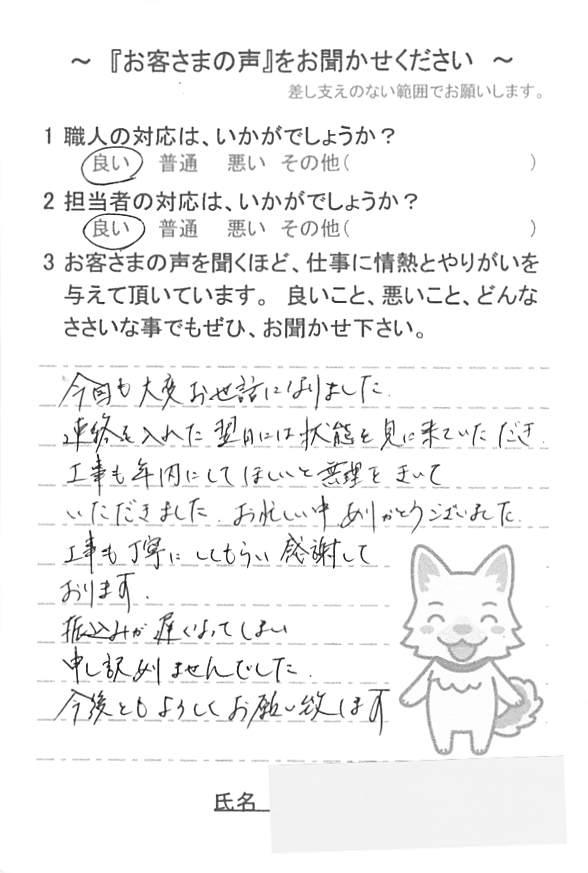 ～ 『お客さまの声』をお聞かせください ～
差し支えのない範囲でお願いします。
1 職人の対応は、いかがでしょうか？
良い 普通 悪い その他( )
2 担当者の対応は、いかがでしょうか？
良い 普通 悪い その他( )
3 お客さまの声を聞くほど、仕事に情熱とやりがいを
与えて頂いています。 良いこと、悪いこと、どんな
ささいな事でもぜひ、お聞かせ下さい。
今回も大変お世話になりました.
連絡を入れた翌日には状態を見に来ていただき.
工事も年内にしてほしいと無理をきいて
いただきました. お忙しい中ありがとうございました.
工事も丁寧にしてもらい感謝して
おります.
振込みが遅くなってしまい
申し訳ありませんでした.
今後ともよろしくお願い致します
氏名